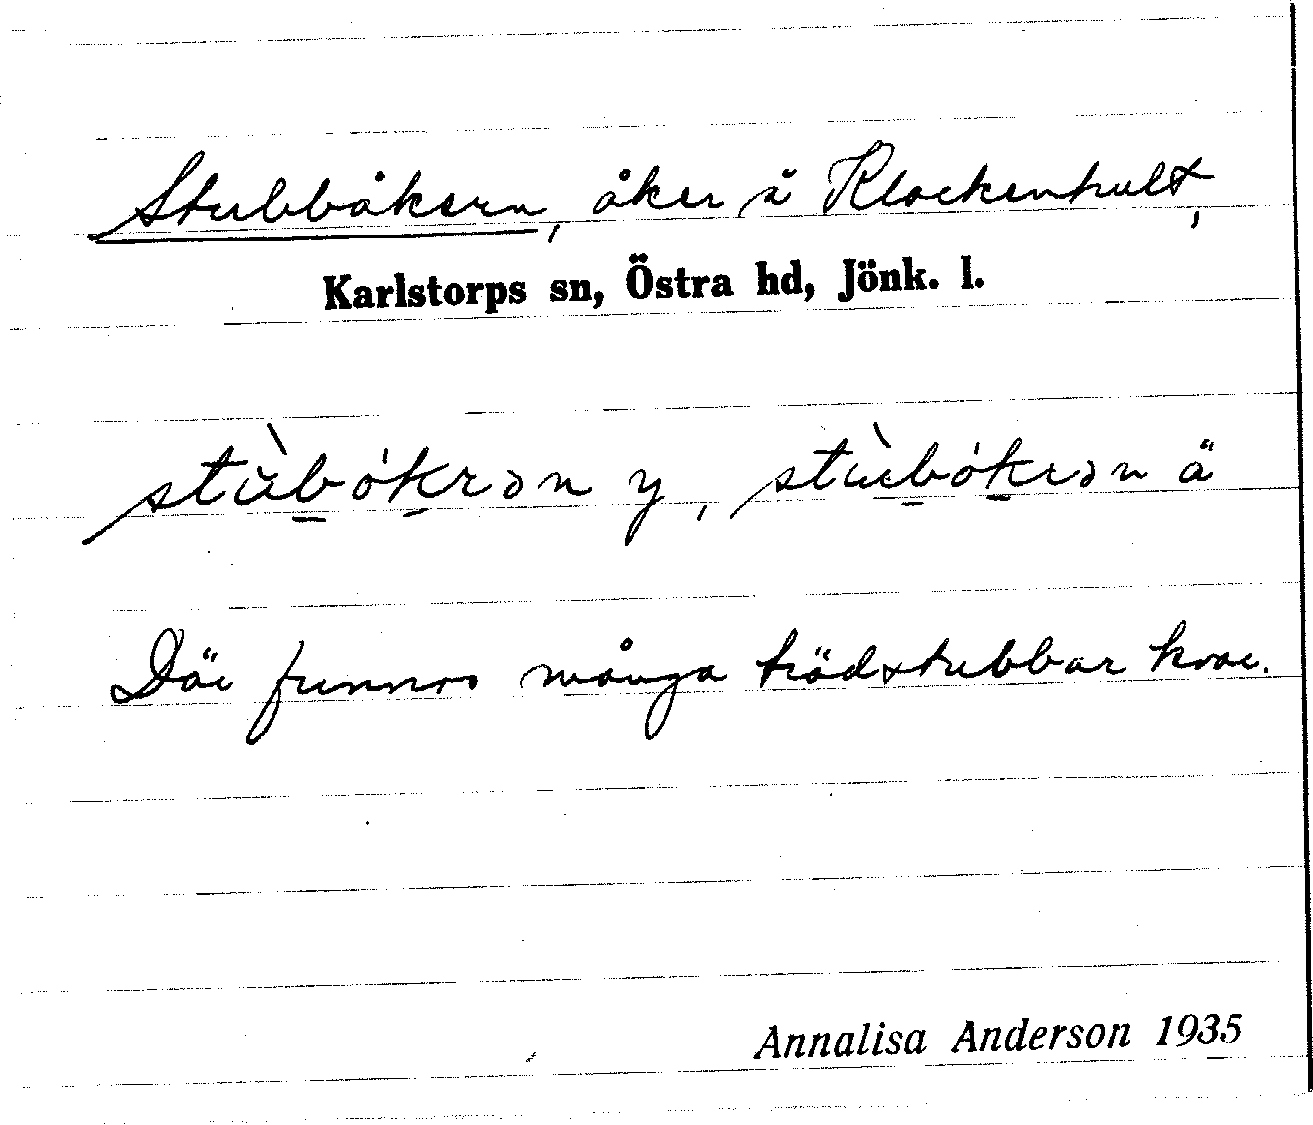 Stubbåkern, åker å Klockenhult,
Karlstorps sn, Östra hd, Jönk. l.
stùbókrən y, stùbókrən ä
Där funnos många trädstubbar kvar.
Annalisa Anderson 1935